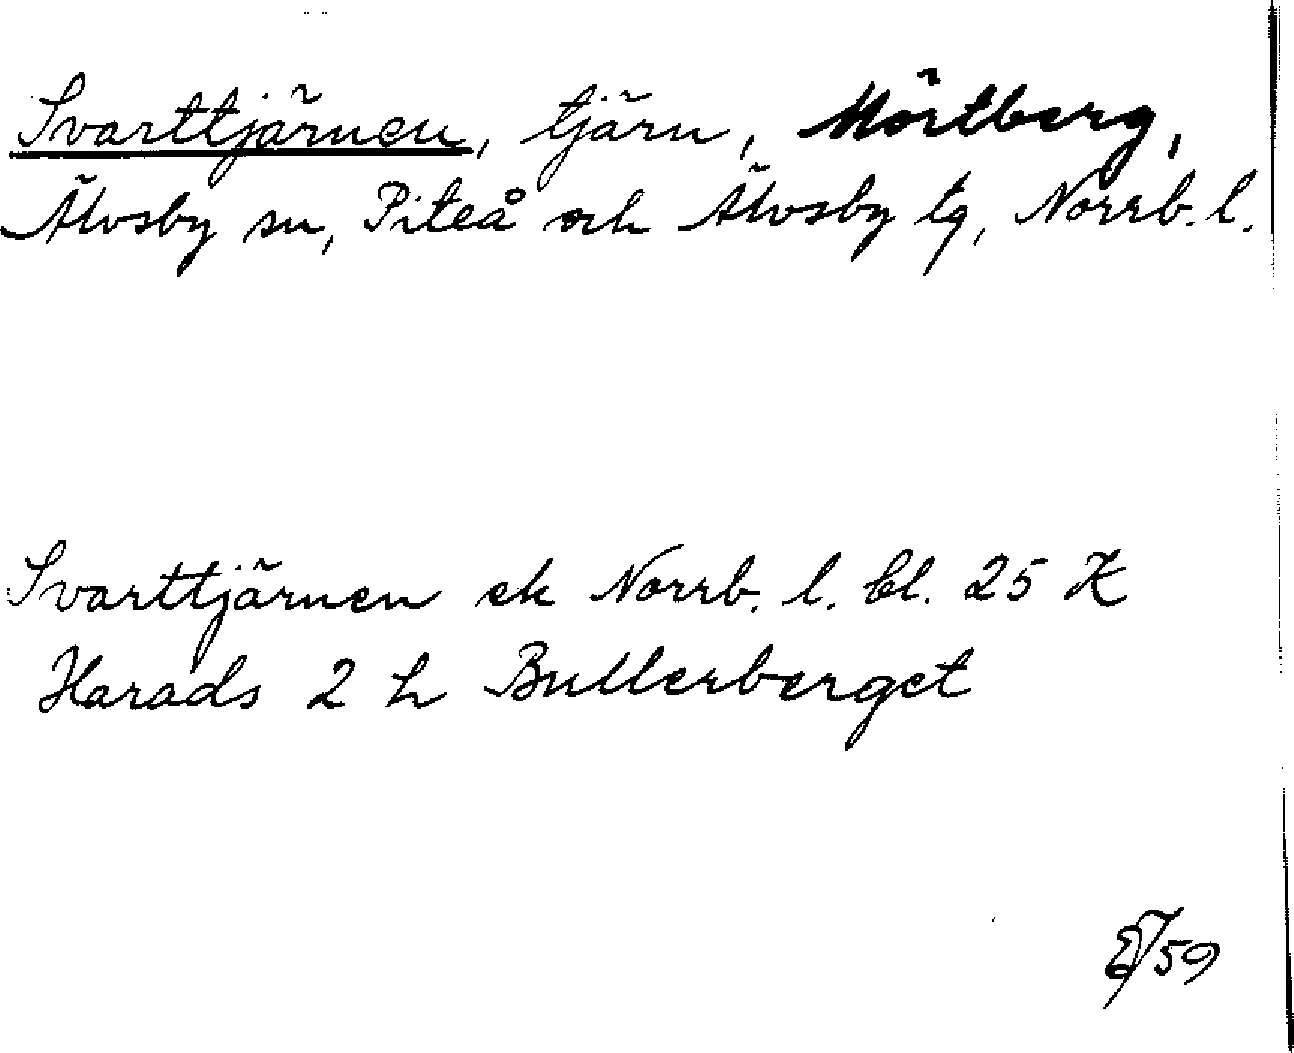 Svarttjärnen, tjärn, Mörtberg,
Älvsby sn, Piteå och Älvsby tg, Norrb. l.
Svarttjärnen ek Norrb. l. bl. 25 K
Harads 2 h Bullerberget
59